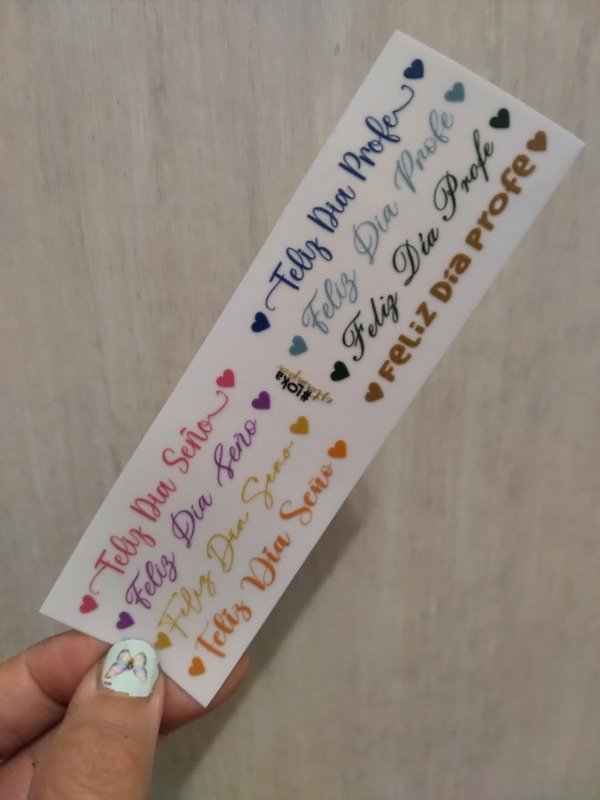 Feliz Dia Profe
Feliz Dia Profe
Feliz Día Profe
Feliz Dia Profe
#lOka
stampa
Feliz Dia Seño
Feliz Dia Seño
Feliz Dia Seño
Feliz Dia Seño